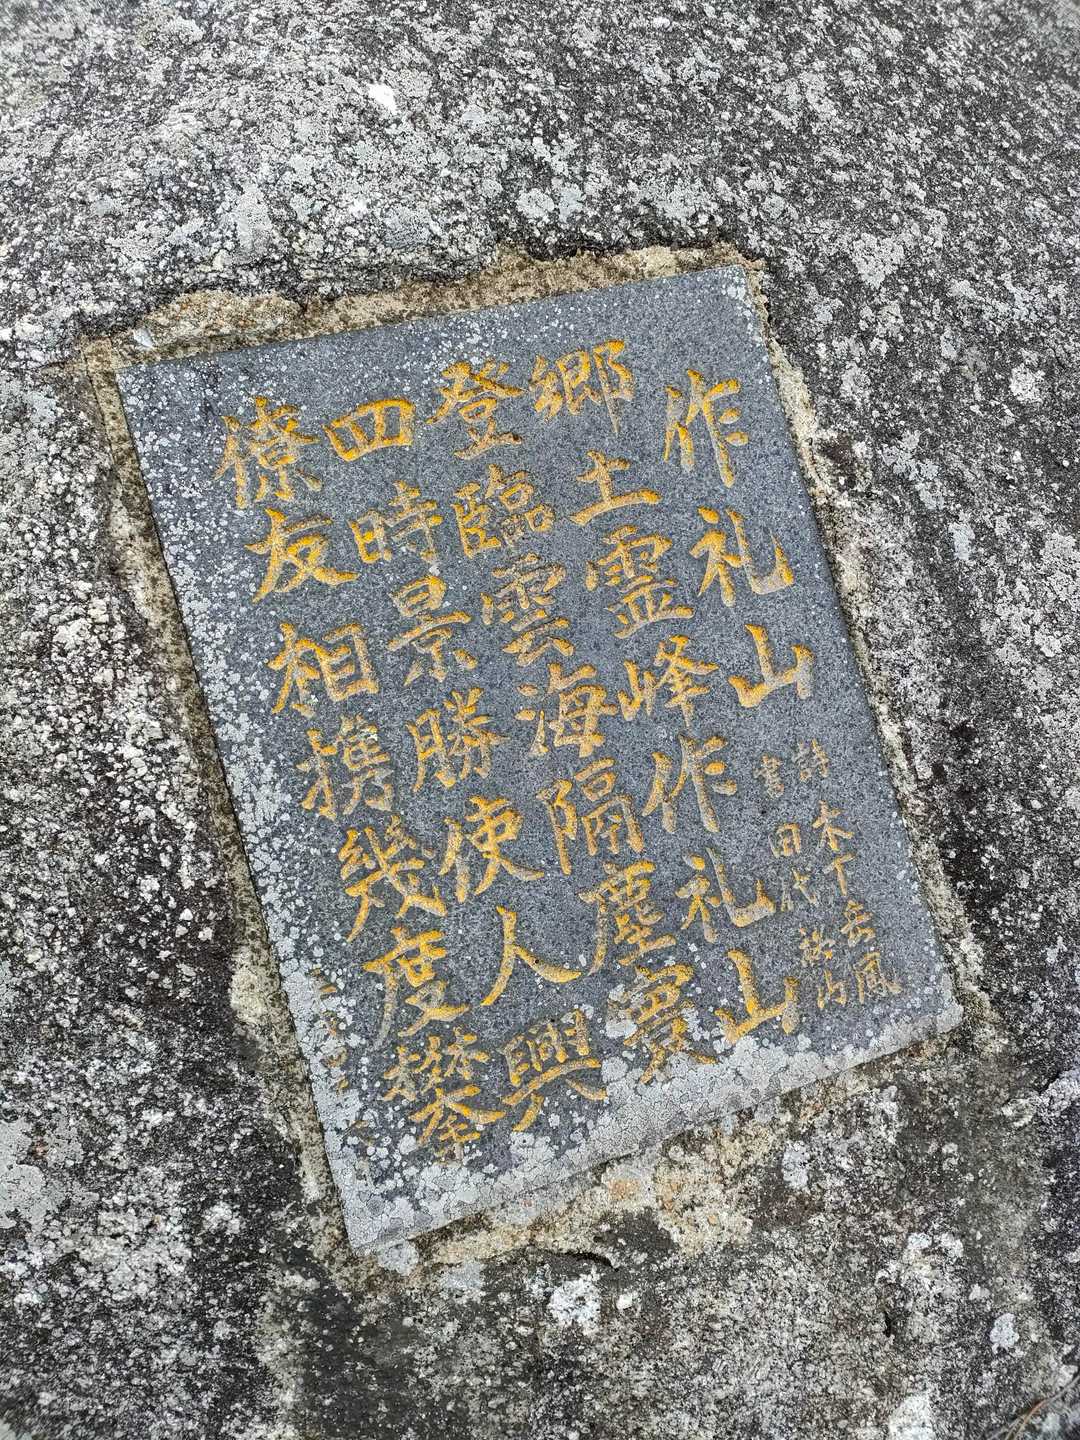 作礼山
詩 木下岳風
書 田代
郷土霊峰作礼山
登臨雲海隔塵寰
四時景勝使人興
僚友相携幾度攀